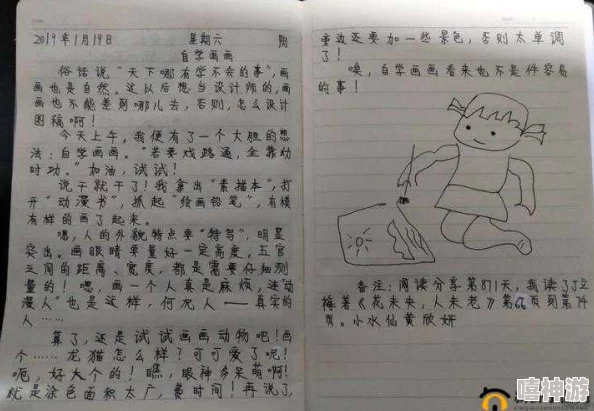 2019年1月19日 星期六 阴
自学画画
俗话说“天下哪有学不会的事”,画
画也是自然。这以后想当设计师的,画
画也不能差到哪儿去,否则,怎么设计
图稿啊!
今天上午,我便有了一个大胆的想
法:自学画画。“若要戏路通,全靠幼
时功。”加油,试试!
说干就干了!我拿出“素描本”,打
开“动漫书”,抓起“绘画铅笔”,有模
有样的画了起来。
嗯,人的外貌特点要“特写”,明显
突出。画眼睛要量好一定高度,五官
之间的距离、宽度,都是需要仔细测
量的!嗯,画一个人真是麻烦,连“动
漫人”也是这样,何况人——真实的
人……
算了,还是试试画画动物吧!画
个……龙猫怎么样?可可爱了呢!
呃,好大个的!瞧,眼神多呆萌啊!
就是涂色面积太广,费时间!再说了,
旁边还要加一些景色,否则太单调
了!
唉,自学画画看来也不是件容易
的事!
备注:阅读分享第871天,我读了丁立
梅著《花未央,人未老》第66页到第74
页。小水仙黄欣妍
嘻神游